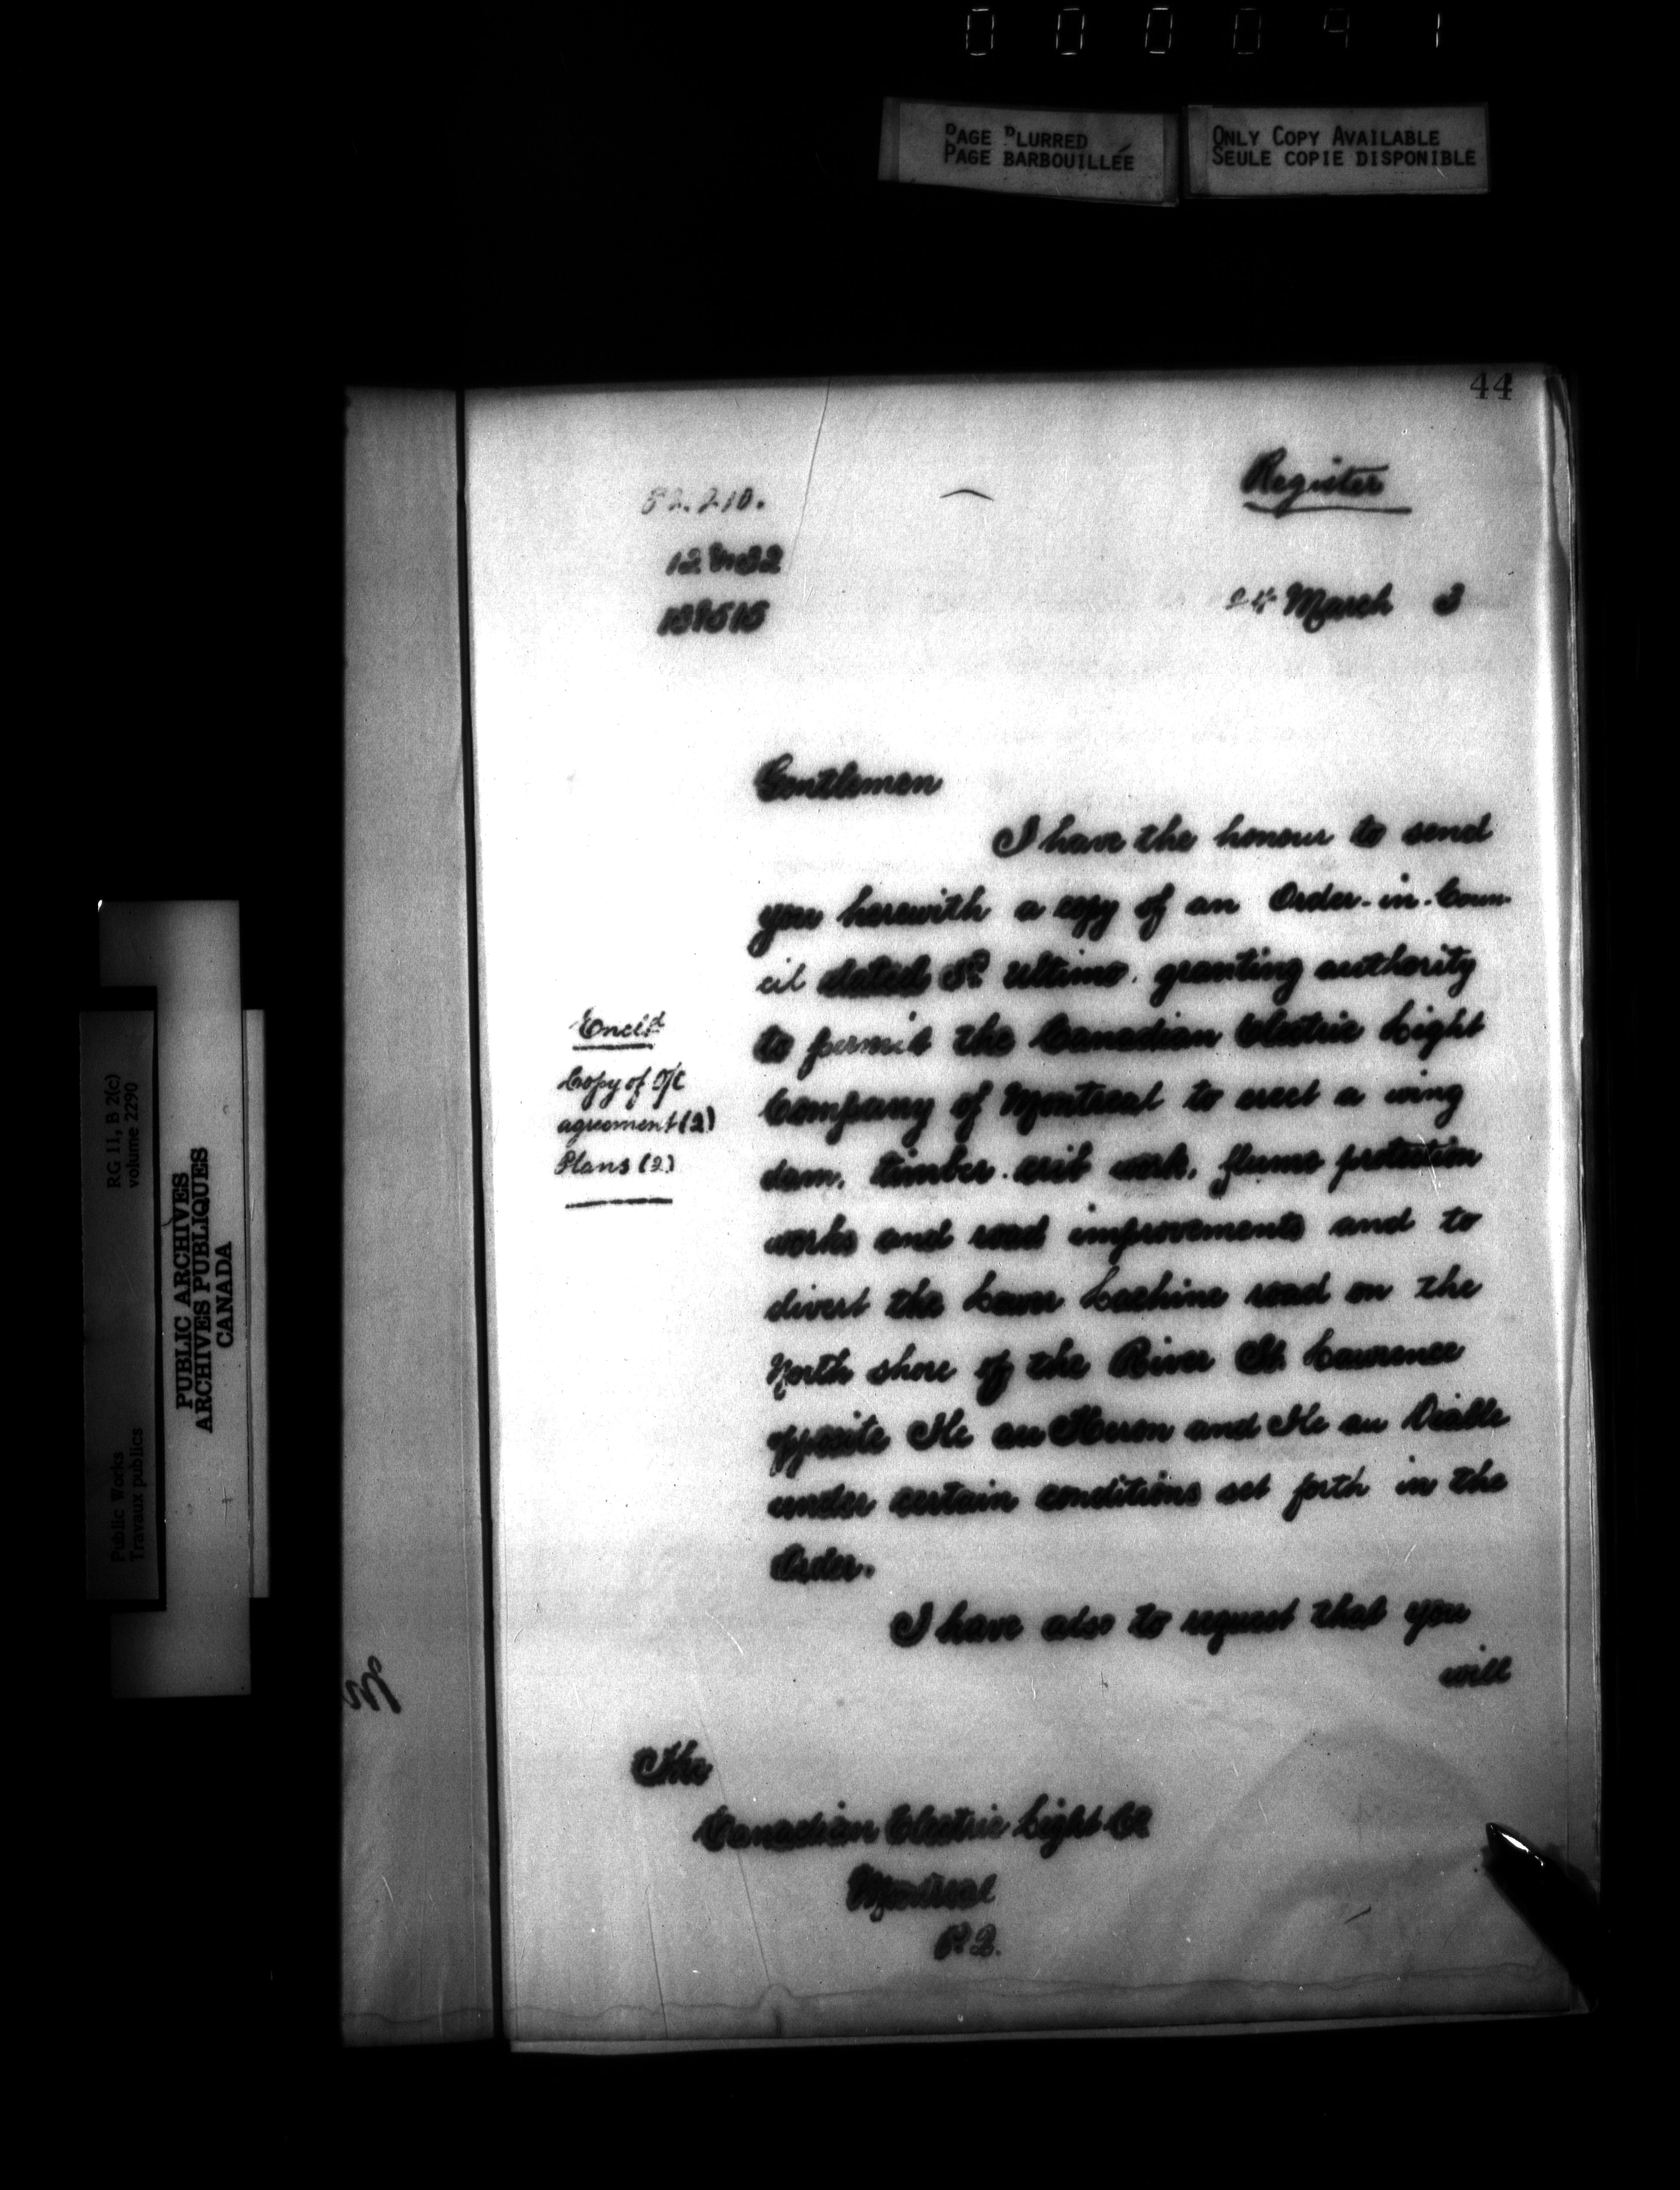 000041
PAGE BLURRED
PAGE BARBOUILLÉE
ONLY COPY AVAILABLE
SEULE COPIE DISPONIBLE
44
Register
52.210.
139515
24 March 3
Gentlemen
I have the honour to send
you herewith a copy of an Order-in-Coun-
cil dated ultimo, granting authority
to permit the Canadian Electric Light
Company of Montreal to erect a wing
dam, timber crib work, flume protection
works and road improvements and to
divert the Lower Lachine road on the
North shore of the River St. Lawrence
opposite Ile au Heron and Ile au Diable
under certain conditions set forth in the
Order.
I have also to request that you
will
Encl.d
Copy of O/C
agreement (2)
Plans (2)
The
Canadian Electric Light Co.
Montreal
P.Q.
RG 11, B 2(c)
volume 2290
Public Works
Travaux publics
PUBLIC ARCHIVES
ARCHIVES PUBLIQUES
CANADA